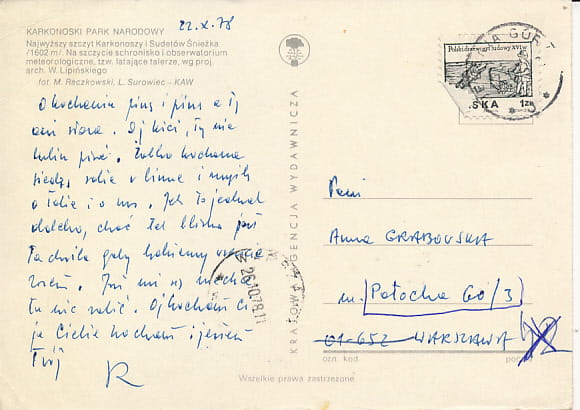 22.X.78
KARKONOSKI PARK NARODOWY
Najwyższy szczyt Karkonoszy i Sudetów Śnieżka
/1602 m/. Na szczycie schronisko i obserwatorium
meteorologiczne, tzw. latające talerze, wg proj.
arch. W. Lipińskiego
fot. M. Raczkowski, L. Surowiec — KAW
O kochania piszę i piszę a Ty
ani słowa. Oj kici, Ty nie
lubisz pisać. Tylko kochana
siedzę sobie w i myśli
o Tobie i o nas. Jak to jednak
daleko, choć tak blisko jest
ta chwila gdy będziemy
razem. Już mi się nie chce
tu nic robić. Oj kocham Ci
ja Ciebie kocham i jestem
Twój
R
KRAJOWA AGENCJA WYDAWNICZA
JELENIA GÓRA
Polski drzeworyt ludowy XVI w.
SKA 1zł
26.10.78.11
Pani
Anna GRABOWSKA
ul. Potocka 60/3
01-652 WARSZAWA
ozn. kod.
Wszelkie prawa zastrzeżone